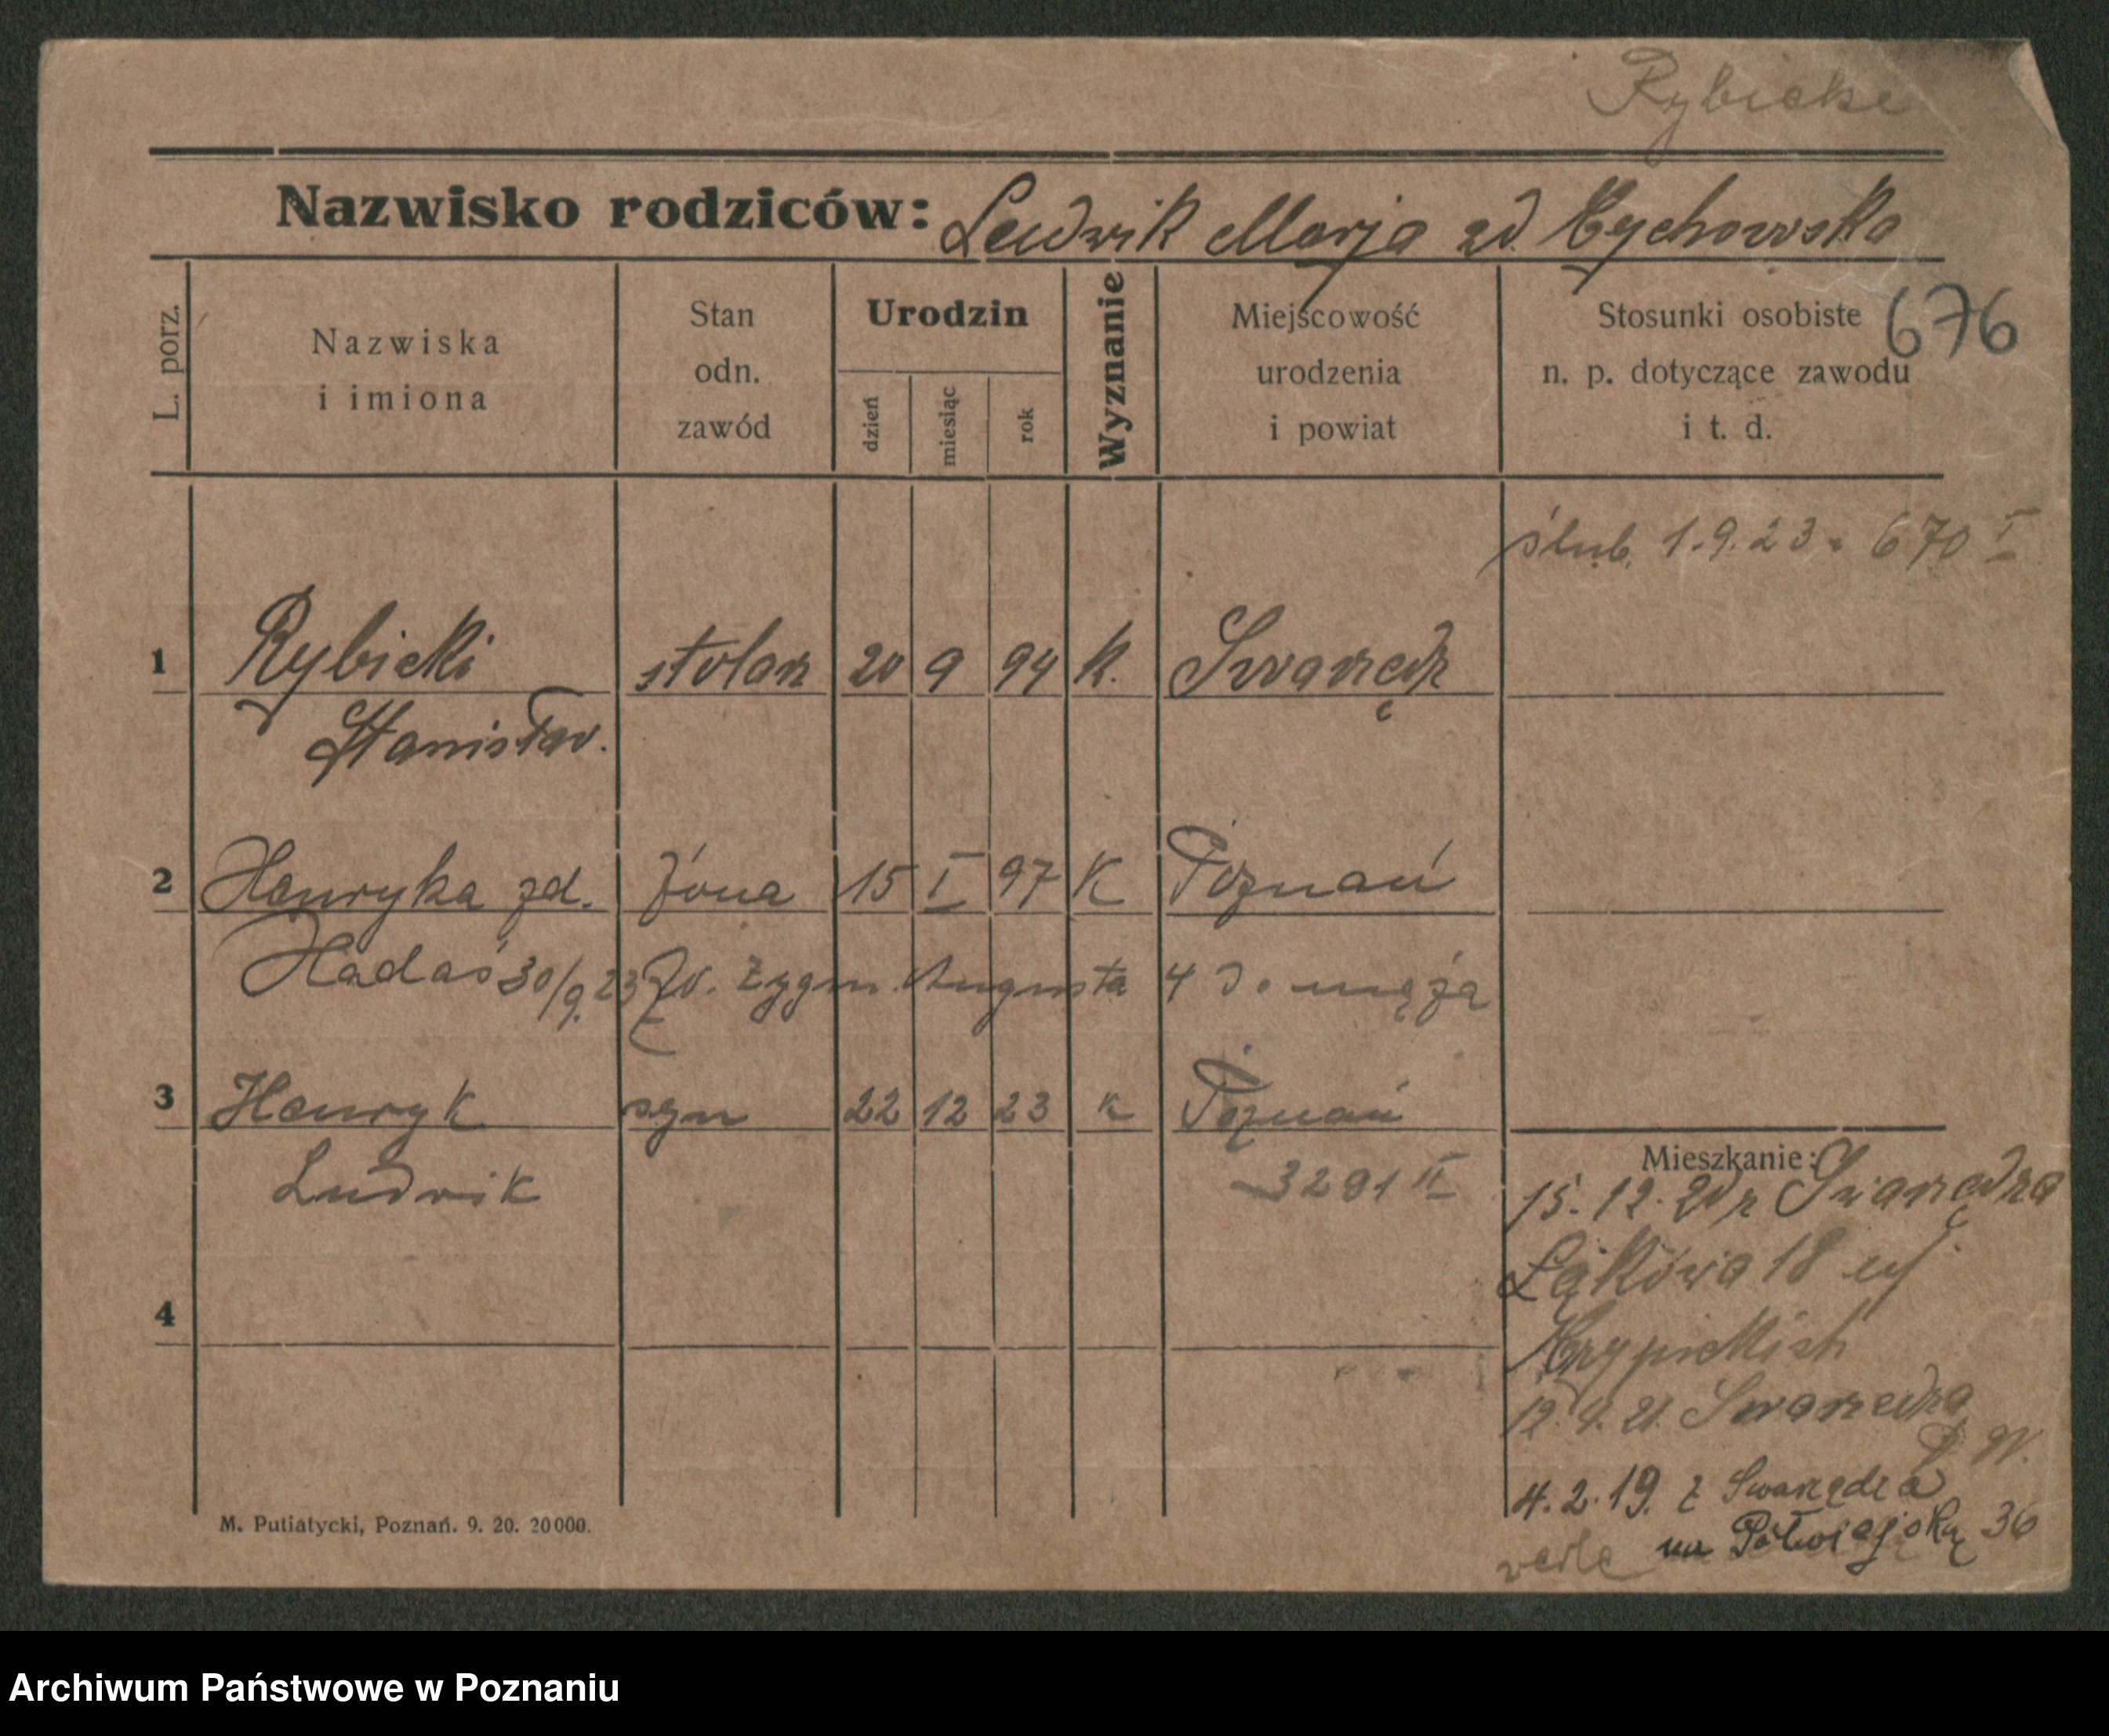 Rybicki
Nazwisko rodziców: Ludwik Marja zd. Cychowska
L. porz.
Nazwiska i imiona
Stan odn. zawód
Urodzin
dzień miesiąc rok
Wyznanie
Miejscowość urodzenia i powiat
Stosunki osobiste n. p. dotyczące zawodu i t. d.
676
ślub. 1.9.23. 670 I
1 Rybicki stolarz 20 9 94 K. Swarzędz
Stanisław.
2 Henryka zd. żona 15 I 97 K Poznań
Hadaś 30/9.23 Zygm. Augusta 4 do męża
3 Henryk syn 22 12 23 K Poznań
Ludwik 3291 II
Mieszkanie:
15.12.20 z Swarzędza
Łąkowa 18
4
12.4.21. Swarzędza
4.2.19. z Swarzędza
na Półwiejską 36
M. Putiatycki, Poznań. 9. 20. 20 000.
Archiwum Państwowe w Poznaniu